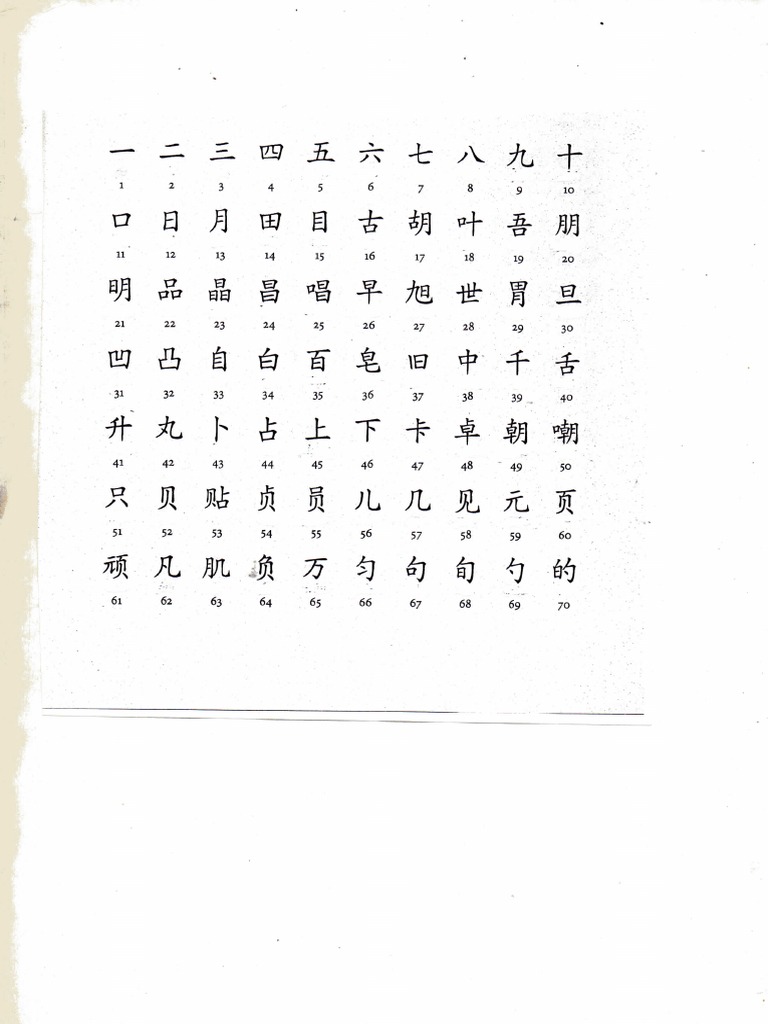 一 二 三 四 五 六 七 八 九 十
1 2 3 4 5 6 7 8 9 10
口 日 月 田 目 古 胡 叶 吾 朋
11 12 13 14 15 16 17 18 19 20
明 品 晶 昌 唱 早 旭 世 胃 旦
21 22 23 24 25 26 27 28 29 30
凹 凸 自 白 百 皂 旧 中 千 舌
31 32 33 34 35 36 37 38 39 40
升 丸 卜 占 上 下 卡 卓 朝 嘲
41 42 43 44 45 46 47 48 49 50
只 贝 贴 贞 员 儿 几 见 元 页
51 52 53 54 55 56 57 58 59 60
顽 凡 肌 负 万 匀 句 旬 勺 的
61 62 63 64 65 66 67 68 69 70